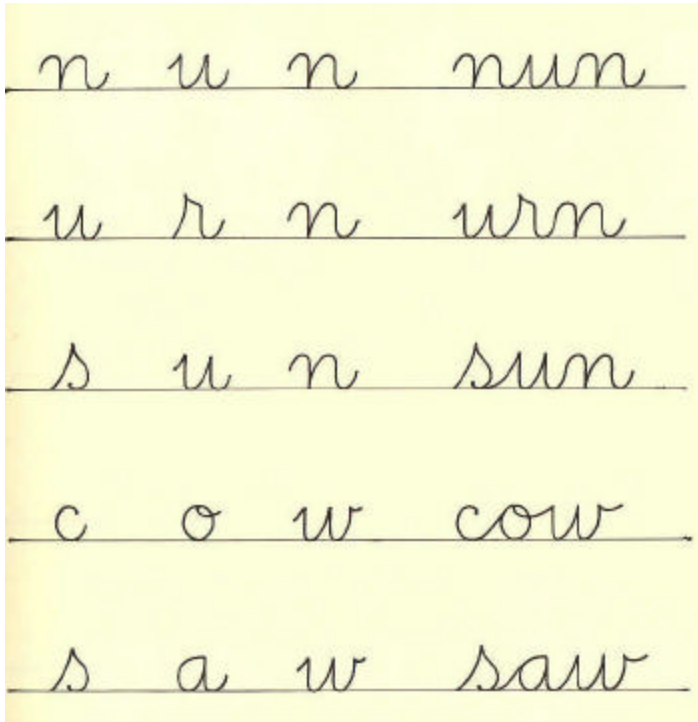 n u n nun
u r n urn
s u n sun
c o w cow
s a w saw